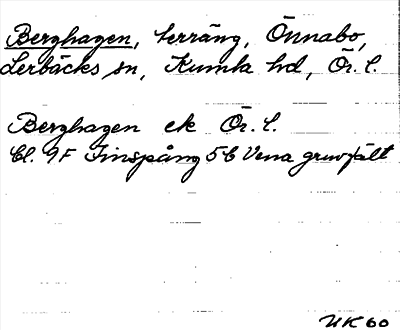 Berghagen, terräng, Önnabo,
Lerbäcks sn, Kumla hd, Ör. l.
Berghagen ek Ör. l.
Bl. 9F Finspång 5C Vena gruvfält
UK 60